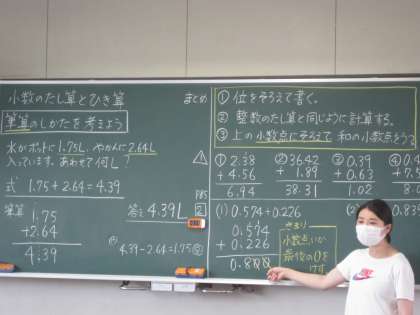 小数のたし算とひき算
筆算のしかたを考えよう
水がポットに1.75L、やかんに2.64L
入っています。あわせて何L?
式 1.75+2.64=4.39
筆算
1.75
+2.64
4.39
答え 4.39L
4.39-2.64=1.75
まとめ
① 位をそろえて書く。
② 整数のたし算と同じように計算する。
③ 上の小数点にそろえて 和の小数点をうつ
P85
2
① 2.38
+ 4.56
6.94
② 36.42
+ 1.89
38.31
③ 0.39
+ 0.63
1.02
(1) 0.574+0.226
0.574
+ 0.226
0.800
きまり
小数点以下
最後の0を
けす
(2) 0.83